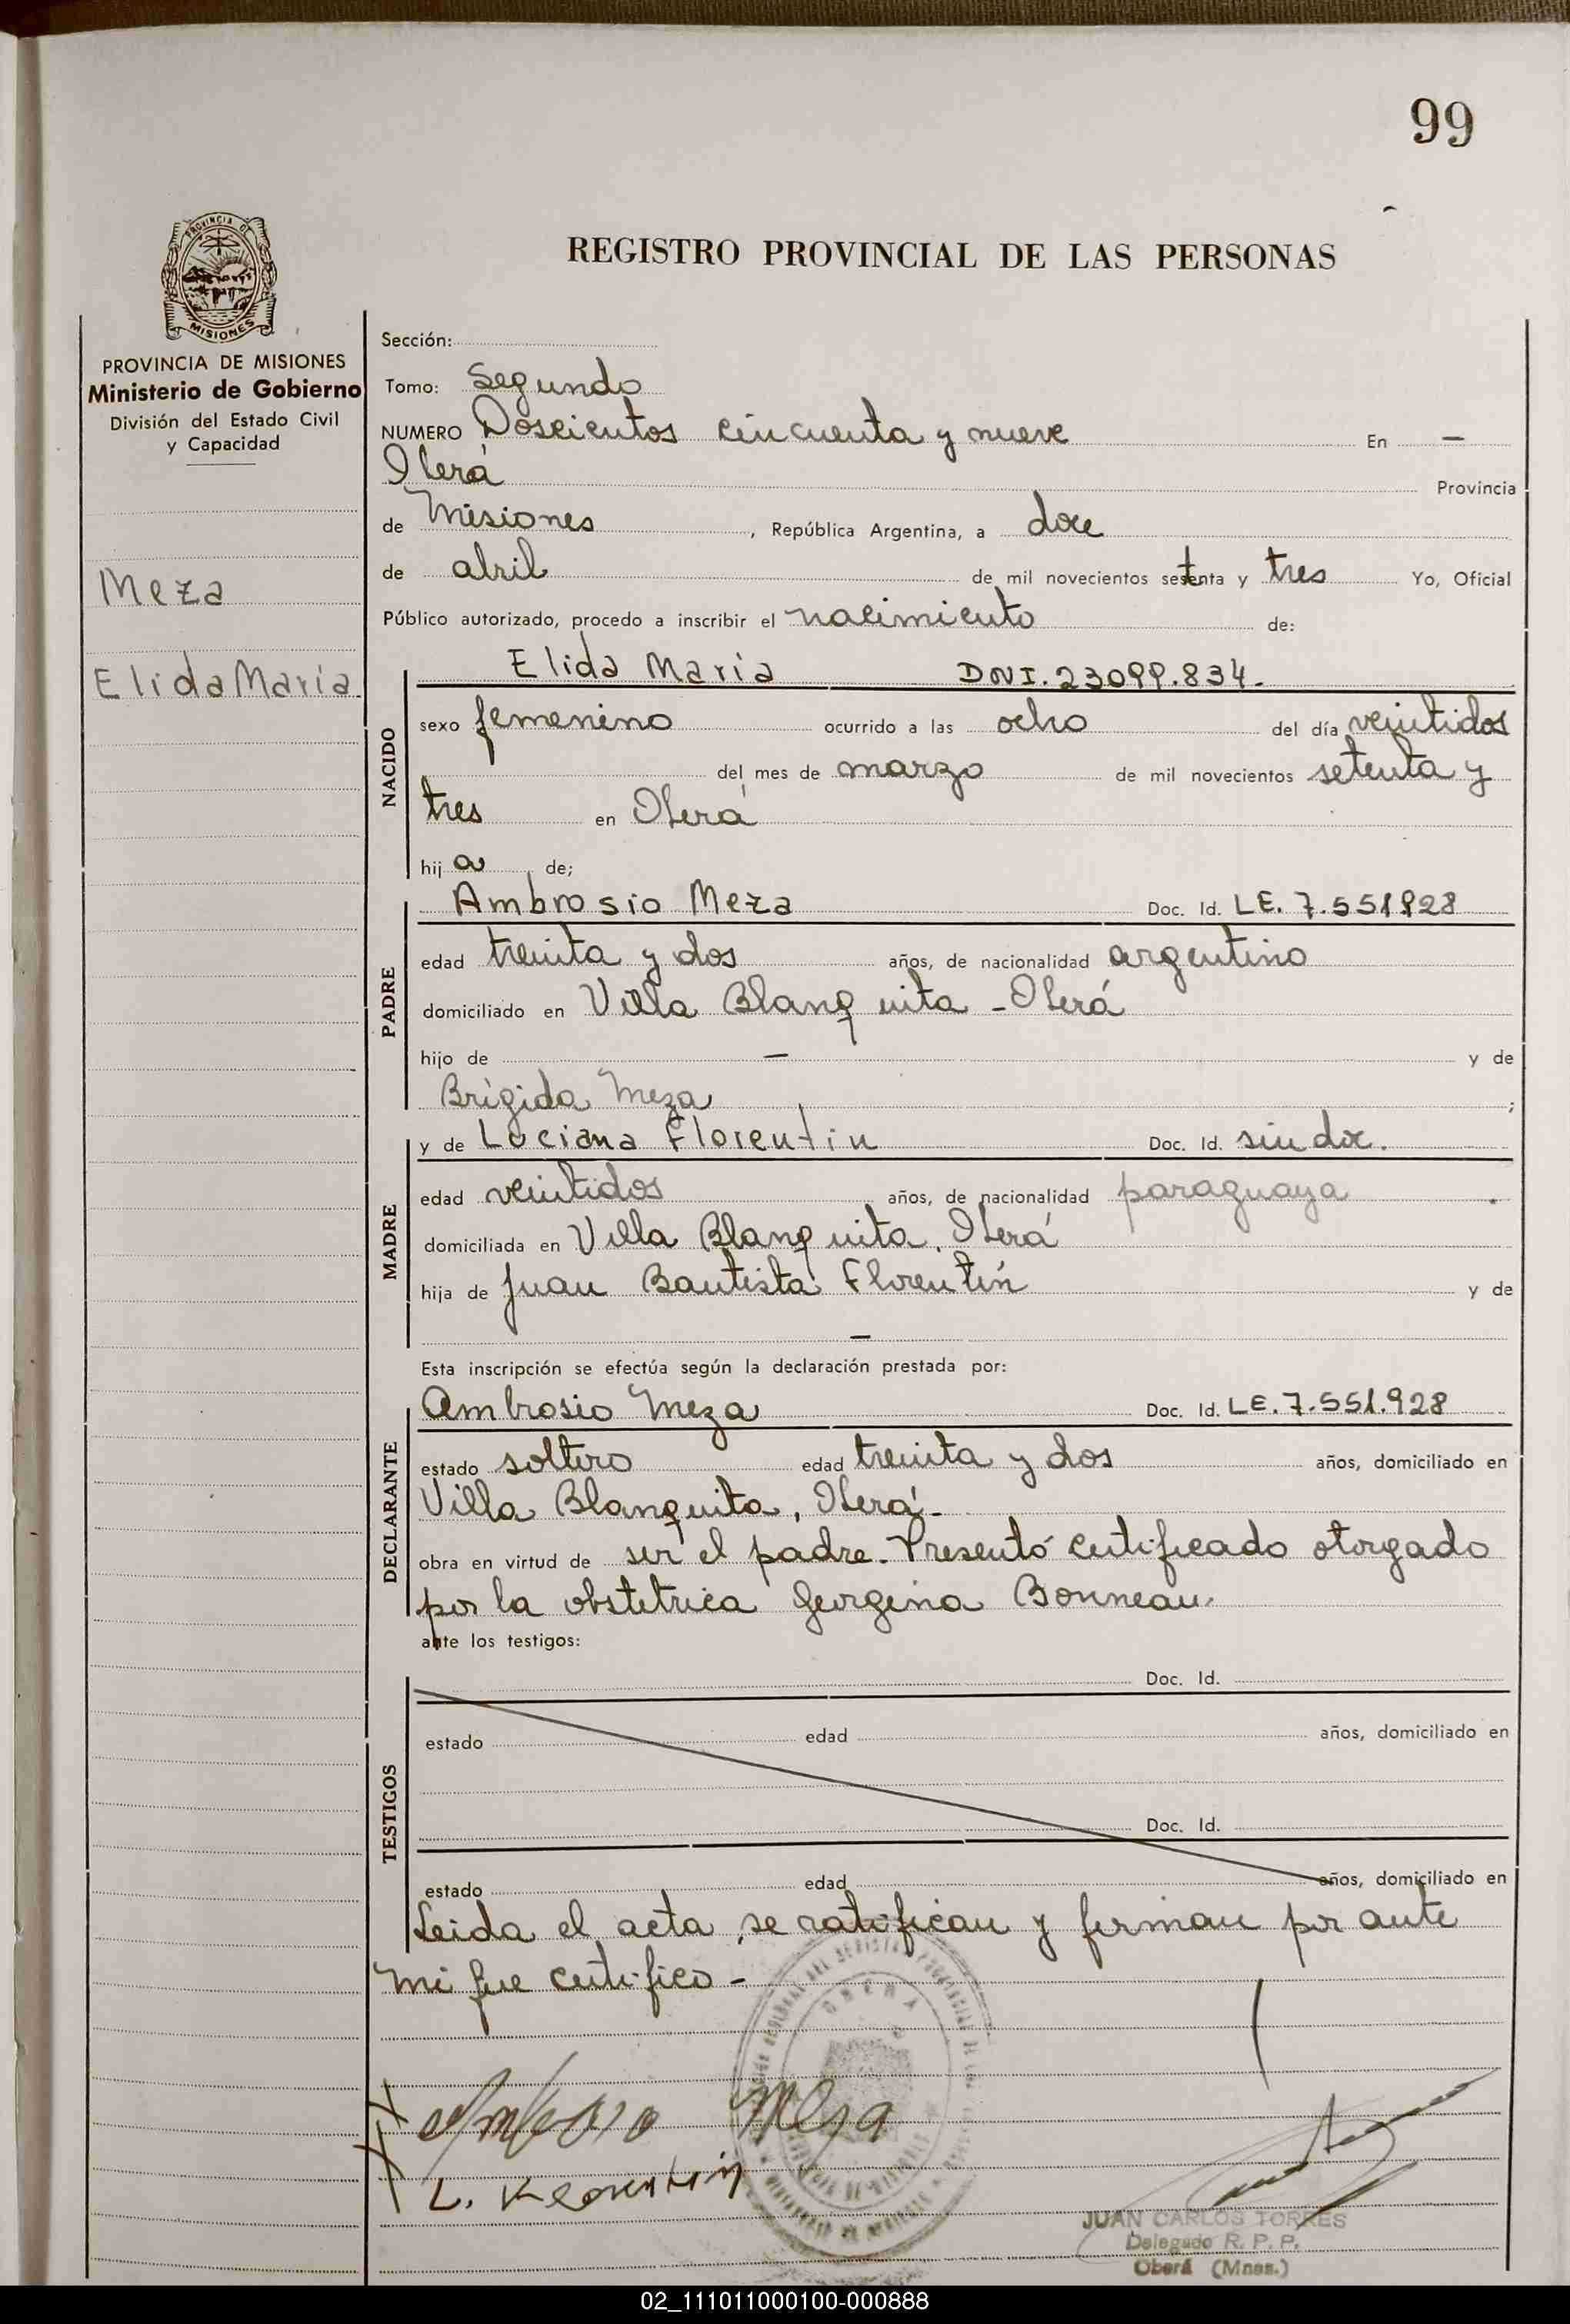 99
REGISTRO PROVINCIAL DE LAS PERSONAS
PROVINCIA DE MISIONES
Ministerio de Gobierno
División del Estado Civil
y Capacidad
Meza
Elida María
Sección:
Tomo: Segundo
NUMERO Doscientos cincuenta y nueve En —
Oberá Provincia
de Misiones, República Argentina, a doce
de abril de mil novecientos setenta y tres Yo, Oficial
Público autorizado, procedo a inscribir el nacimiento de:
Elida María DNI. 23099.834-
NACIDO
sexo femenino ocurrido a las ocho del día veintidos
del mes de marzo de mil novecientos setenta y
tres en Oberá
hija de;
PADRE
Ambrosio Meza Doc. Id. LE. 7.551.928
edad treinta y dos años, de nacionalidad argentino
domiciliado en Villa Blanquita - Oberá
hijo de — y de
Brígida Meza ;
MADRE
y de Luciana Florentin Doc. Id. sin doc.
edad veintidos años, de nacionalidad paraguaya
domiciliada en Villa Blanquita, Oberá
hija de Juan Bautista Florentín y de
—
Esta inscripción se efectúa según la declaración prestada por:
DECLARANTE
Ambrosio Meza Doc. Id. LE. 7.551.928
estado soltero edad treinta y dos años, domiciliado en
Villa Blanquita, Oberá-
obra en virtud de ser el padre. Presentó certificado otorgado
por la obstetrica Georgina Bonneau.
ante los testigos:
TESTIGOS
Doc. Id.
estado edad años, domiciliado en
Doc. Id.
estado edad años, domiciliado en
Leida el acta, se ratifican y firman por ante
mi que certifico -
Ambrosio Meza
L. Florentin
JUAN CARLOS TORRES
Delegado R. P. P.
Oberá (Mnes.)
02_111011000100-000888